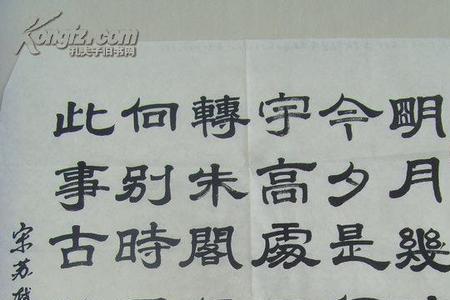 Kongfz.com
孔夫子旧书网
明月幾
今夕是
宇高處
轉朱閣
何别時
此事古
宋苏